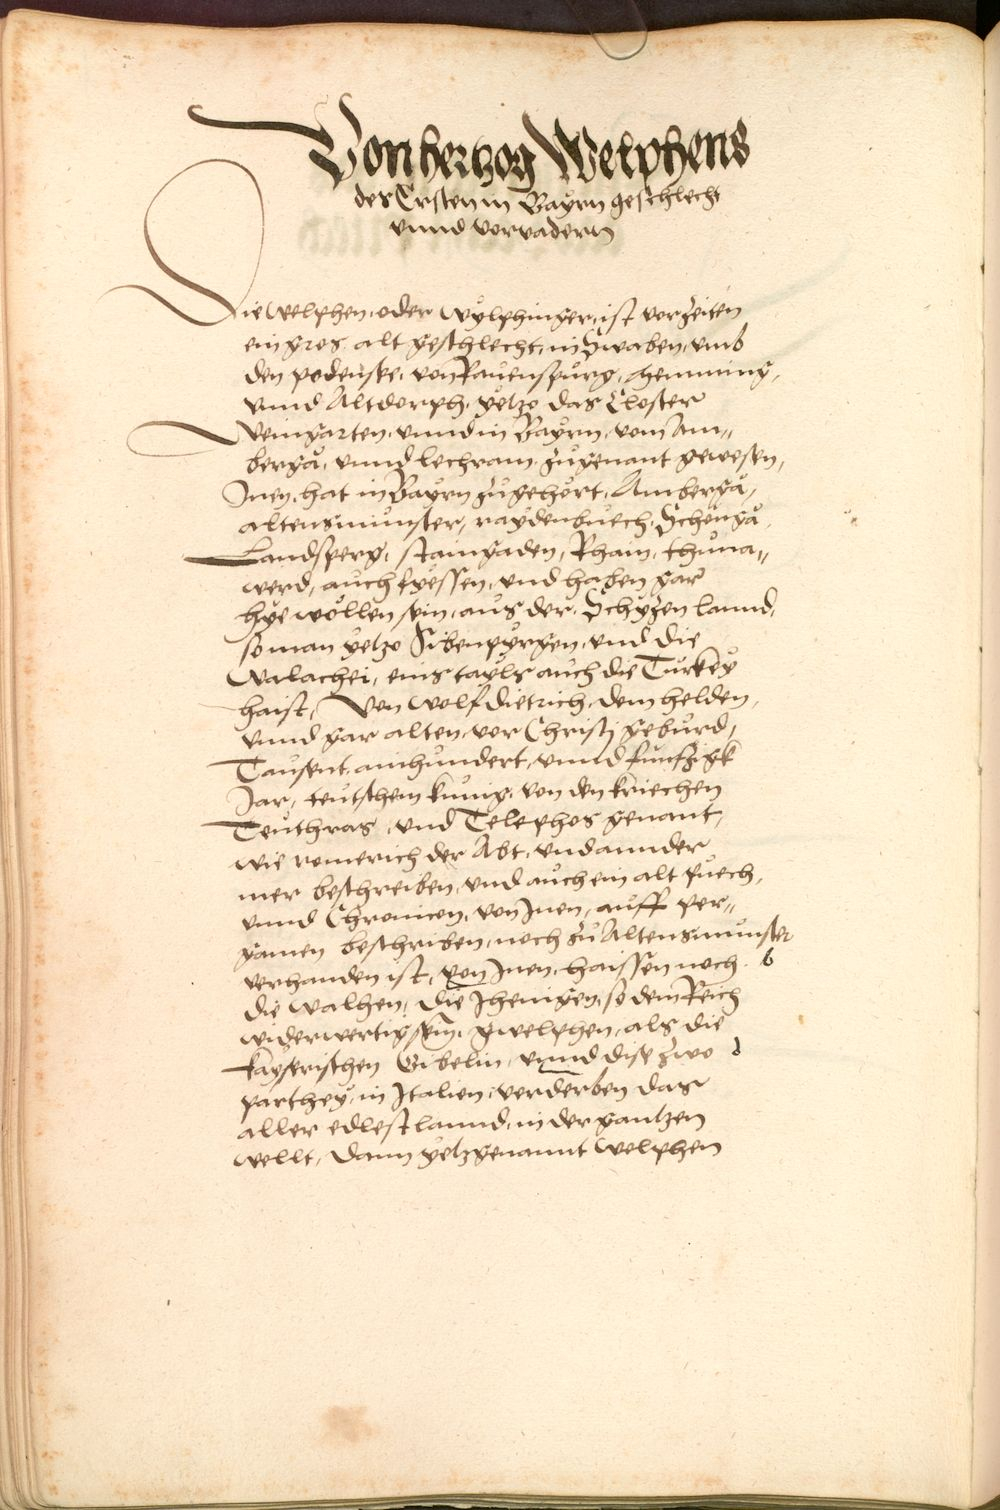 Von hertzog Welphens
des Ersten in Bayrn geschlecht
vnnd vorvadern
Die Welphen, oder Wylphinger, ist vorzeiten
ein gros alt geschlecht, in Swaben, vmb
den podensee, von Rauenspurg, Hemming,
vnnd Altdorph, yetzo das Closter
Weingarten, vnnd in Bayrn, vom Am„
bergaů, vnnd Lechrain, zugenant gewesen,
Inen, hat in Bayrn zugehört, Ambergaů,
altensmůnster, raydenbuech, Schöngaů,
Landsperg, staingaden, Rhain, thůna„
werd, auch fyessen, vnd haben gar
hye wöllen sein, aus der Schyzen lannd,
so man yetzo Sibenpyrgen, vnd die
Walachei, eins tayls auch die Türkey
haist, Von Wolfdietrich, dem helden,
vnnd gar alten, vor Christj geburd,
Tausent ainhundert, vnnd funfzigk
Jar, teutschem kunig, von den kriechen
Teuthras, vnd Telephos genant,
wie romerich der Abt, vnd annder
mer beschreiben, vnd auch ein alt puech,
vnnd Chronicon, von Inen, auff per„
gamen beschriben, noch zu Altensmunster
verhanden ist, von Inen, haissen noch b
die Walhen, die Jhenigen, so dem Reich
widerwertig sein, gwelphen, als die
kayserischen Gibelin, vnnd dise zwo d
parthey, in Italien, verderben das
aller edlest lannd, in der gantzen
wellt, dann yetzgenannt Welphen